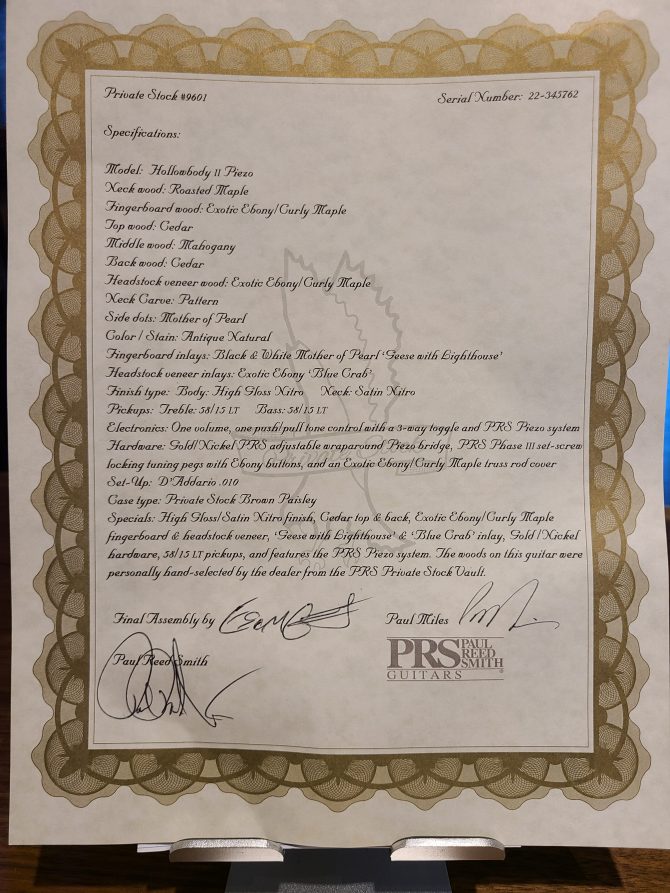 Private Stock #9601
Serial Number: 22-345762
Specifications:
Model: Hollowbody II Piezo
Neck wood: Roasted Maple
Fingerboard wood: Exotic Ebony/Curly Maple
Top wood: Cedar
Middle wood: Mahogany
Back wood: Cedar
Headstock veneer wood: Exotic Ebony/Curly Maple
Neck Carve: Pattern
Side dots: Mother of Pearl
Color / Stain: Antique Natural
Fingerboard inlays: Black & White Mother of Pearl 'Geese with Lighthouse'
Headstock veneer inlays: Exotic Ebony 'Blue Crab'
Finish type: Body: High Gloss Nitro Neck: Satin Nitro
Pickups: Treble: 58/15 LT Bass: 58/15 LT
Electronics: One volume, one push/pull tone control with a 3-way toggle and PRS Piezo system
Hardware: Gold/Nickel PRS adjustable wraparound Piezo bridge, PRS Phase III set-screw
locking tuning pegs with Ebony buttons, and an Exotic Ebony/Curly Maple truss rod cover
Set-Up: D'Addario .010
Case type: Private Stock Brown Paisley
Specials: High Gloss/Satin Nitro finish, Cedar top & back, Exotic Ebony/Curly Maple
fingerboard & headstock veneer, 'Geese with Lighthouse' & 'Blue Crab' inlay, Gold / Nickel
hardware, 58/15 LT pickups, and features the PRS Piezo system. The woods on this guitar were
personally hand-selected by the dealer from the PRS Private Stock Vault.
Final Assembly by
Paul Miles
Paul Reed Smith
PRS PAUL REED SMITH
GUITARS